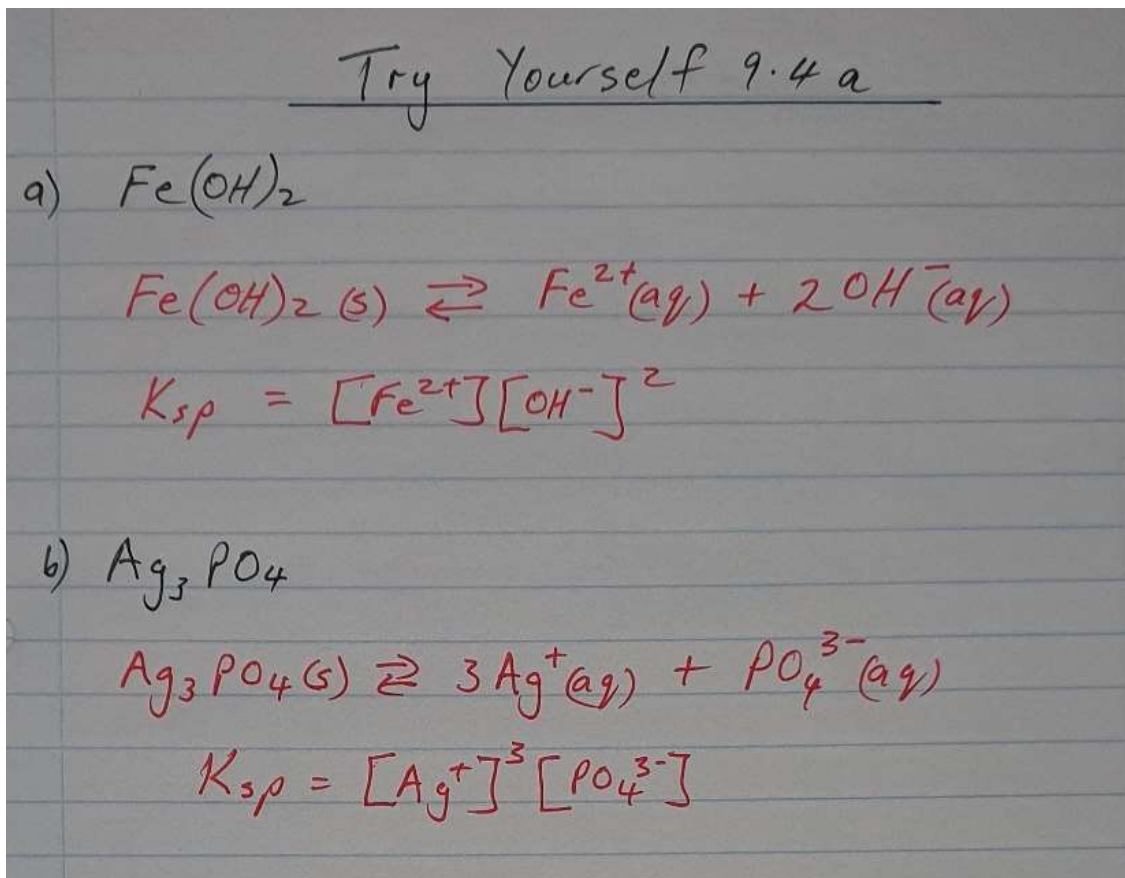 Try Yourself 9.4 a
a) Fe(OH)₂
Fe(OH)₂ (s) ⇄ Fe²⁺(aq) + 2 OH⁻(aq)
Ksp = [Fe²⁺][OH⁻]²
b) Ag₃PO₄
Ag₃PO₄(s) ⇄ 3Ag⁺(aq) + PO₄³⁻(aq)
Ksp = [Ag⁺]³[PO₄³⁻]